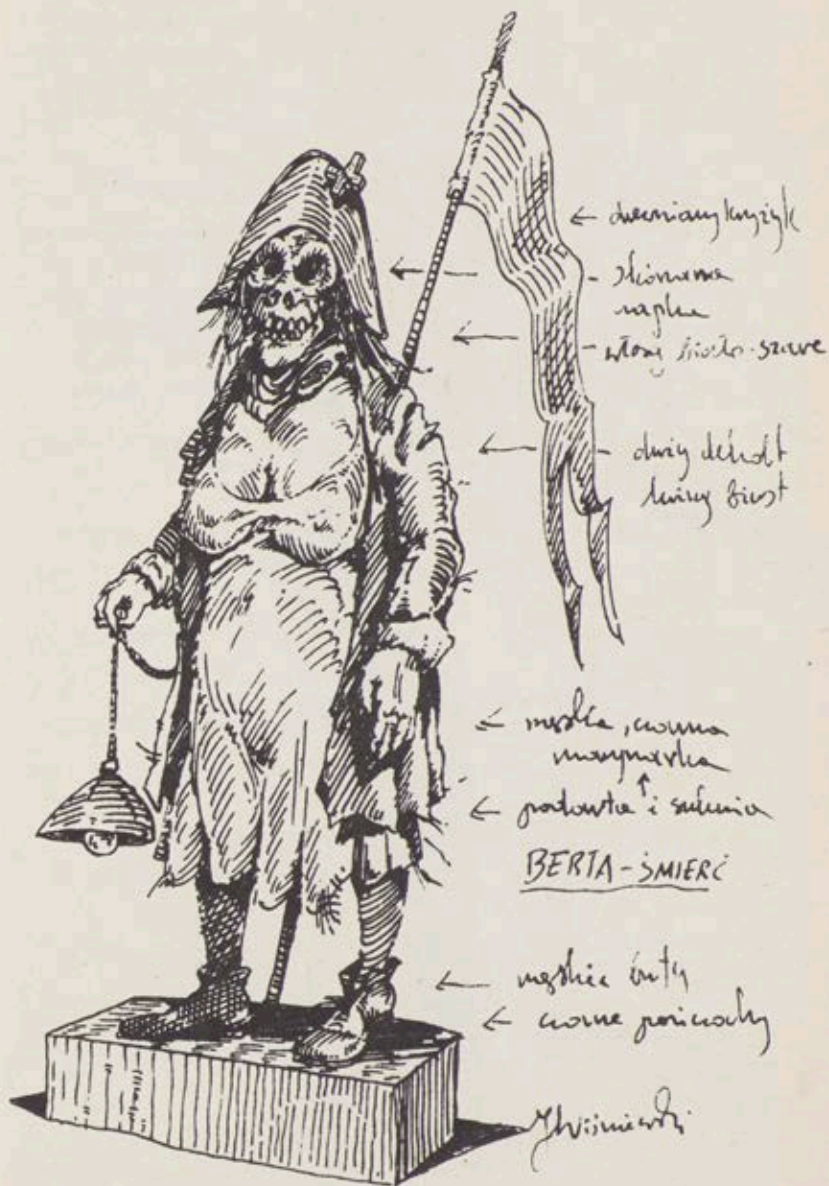 ← drewniany krzyżyk
← skórzana
czapka
← włosy biało-szare
← duży dekolt
biust
← męska, czarna
marynarka
← podarta i suknia
BERTA-ŚMIERĆ
← męskie buty
← czarne pończochy
JWiśniewski